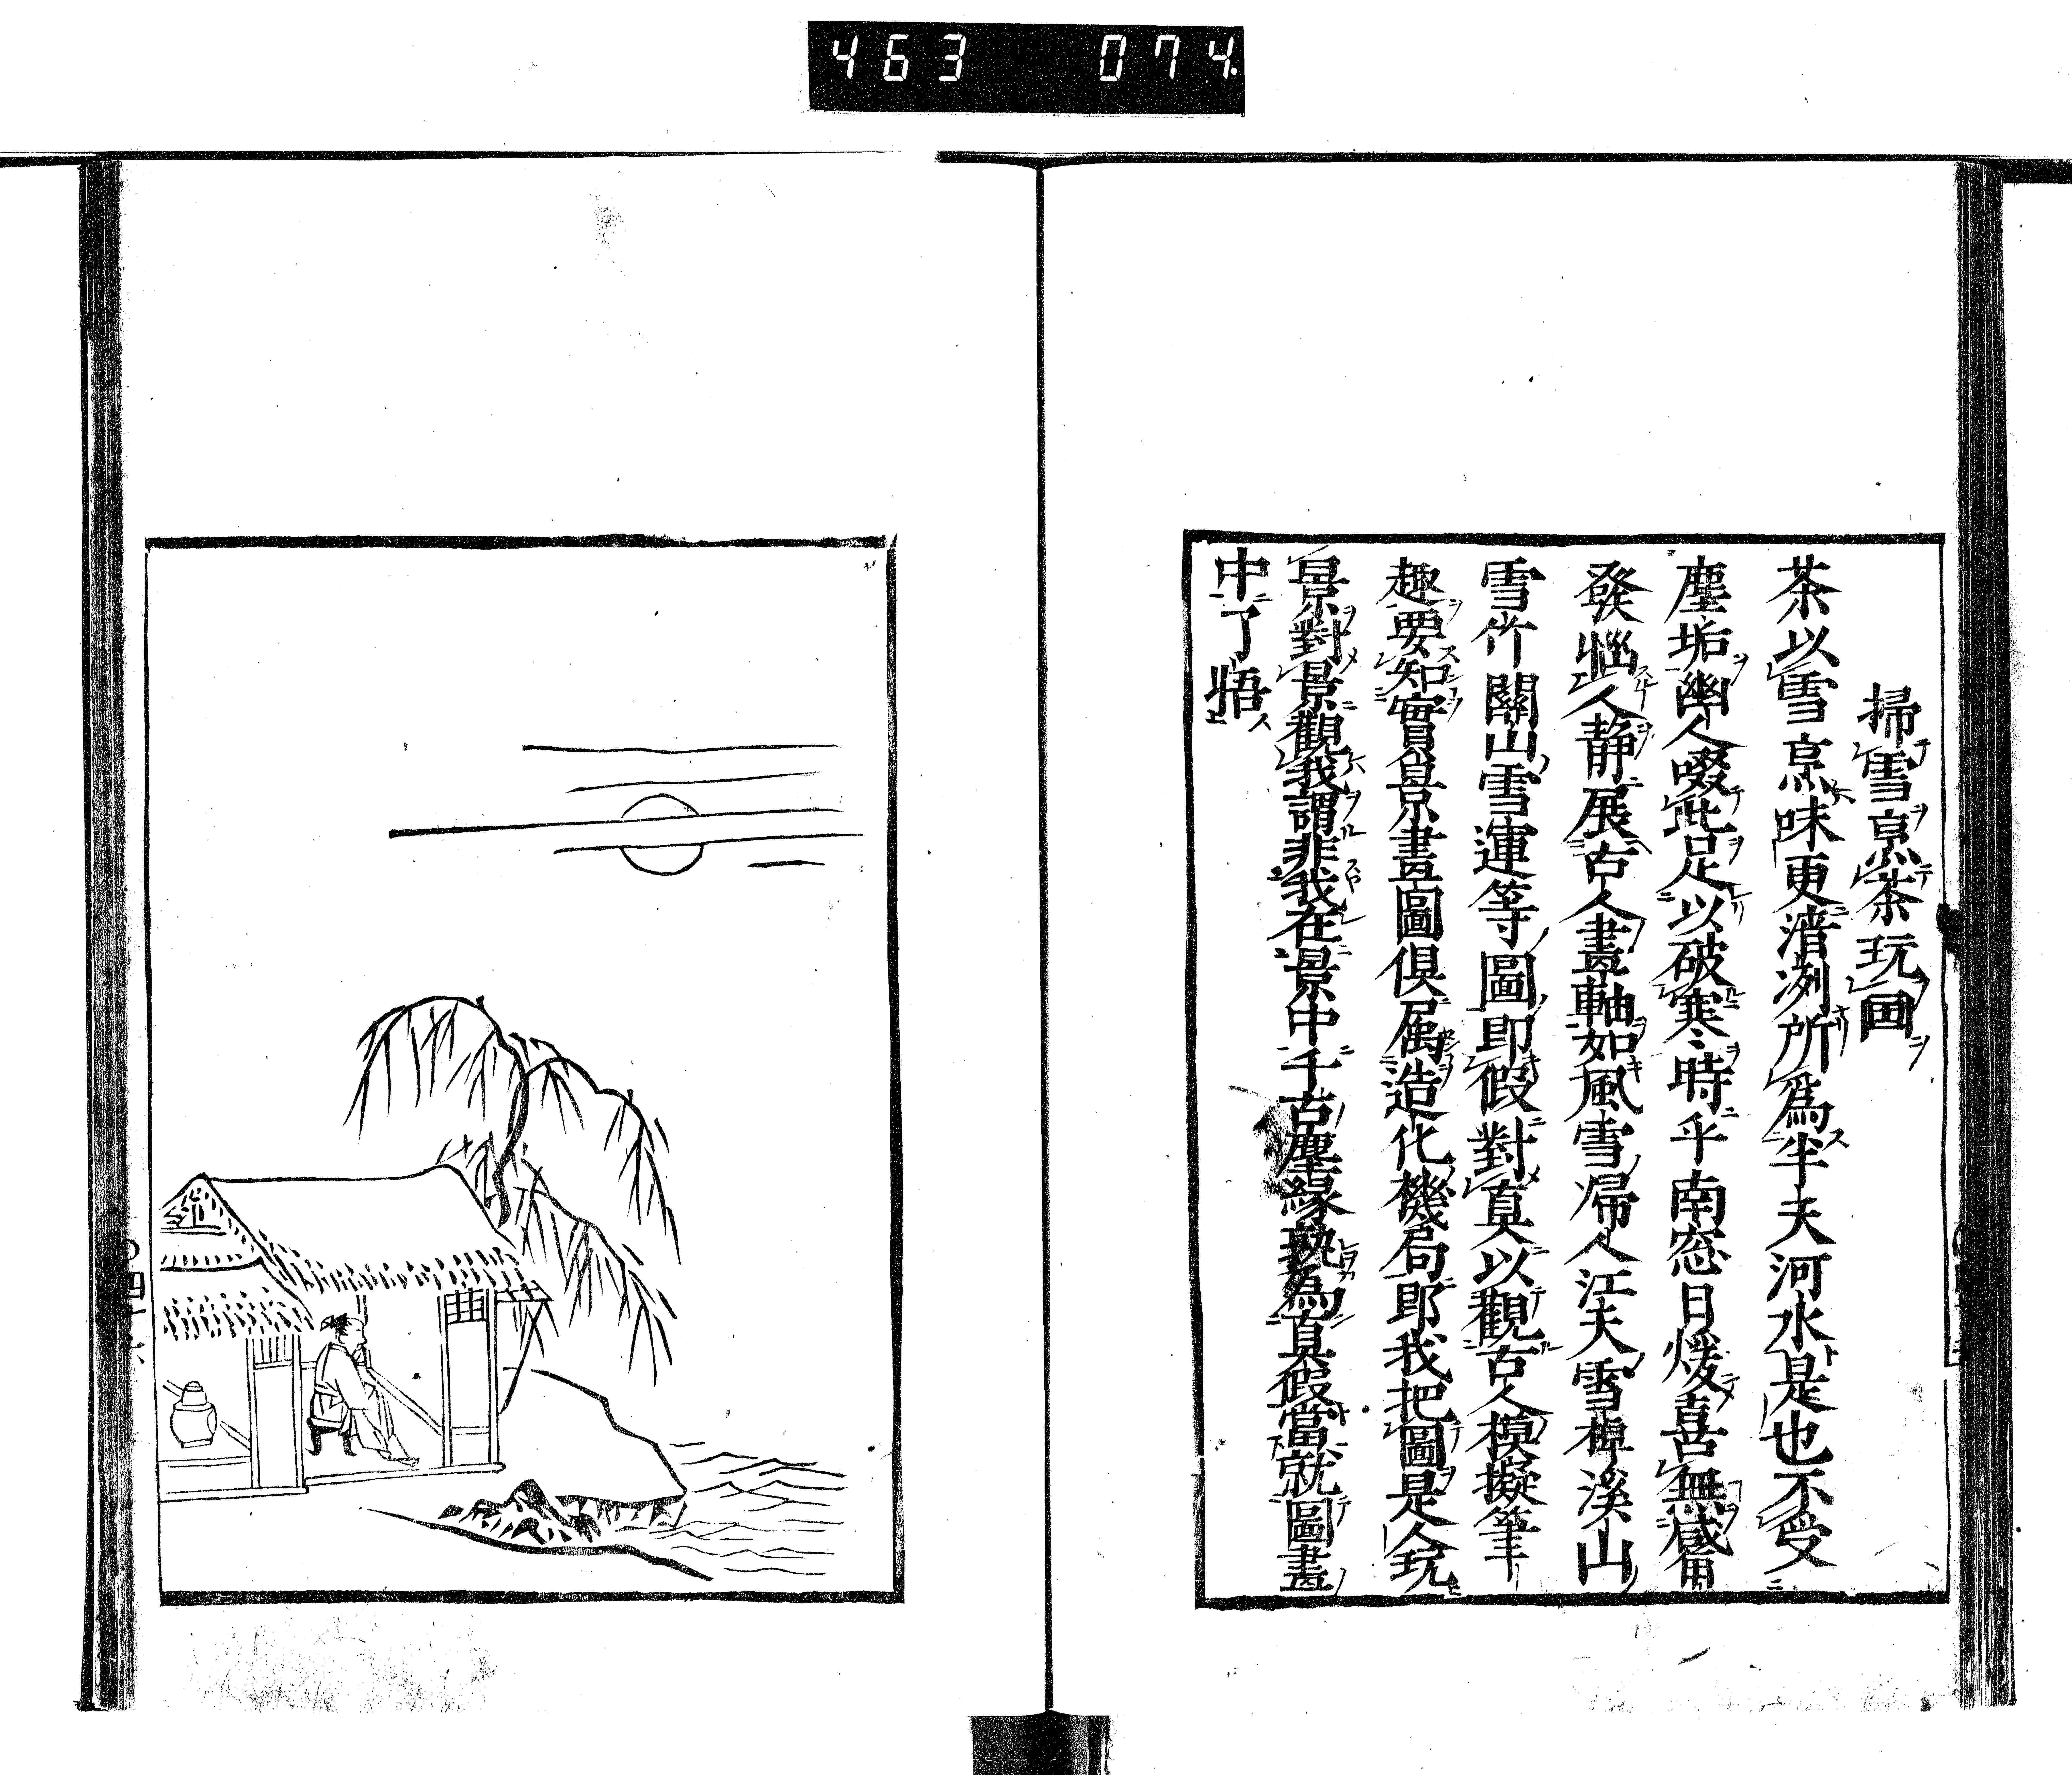 463 074
掃雪烹茶玩画
茶以雪烹味更清冽所爲半天河水是也不受
塵垢幽人啜此足以破寒時乎南窓日煖喜無
發惱人静展古人畫軸如風雪帰人江天雪棹溪山
雪竹關山雪運等圖即假對真以觀古人模擬筆
趣要知實景畫圖俱属造化機局即我把圖是人玩
景對景觀我謂非我在景中千古塵縁孰為真假當就圖畫
中了悟